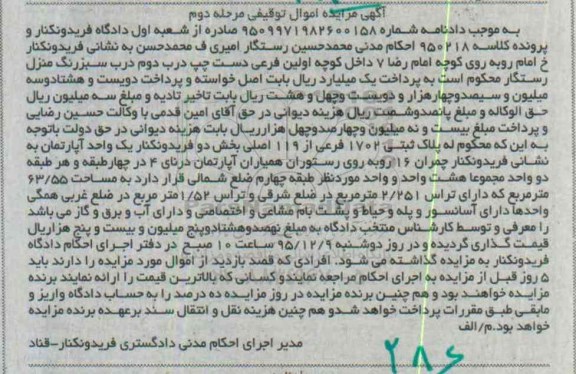 آگهی مزایده اموال توقیفی مرحله دوم
به موجب دادنامه شماره ۹۵۰۹۹۷۱۹۸۲۶۰۰۱۵۸ صادره از شعبه اول دادگاه فریدونکنار و
پرونده کلاسه ۹۵۰۲۱۸ احکام مدنی محمدحسین رستگار امیری ف محمدحسن به نشانی فریدونکنار
خ امام روبه روی کوچه امام رضا ۷ داخل کوچه اولین فرعی دست چپ درب دوم درب سبزرنگ منزل
رستگار محکوم است به پرداخت یک میلیارد ریال بابت اصل خواسته و پرداخت دویست و هشتادوسه
میلیون و سیصدوچهارهزار و دویست وچهل و هشت ریال بابت تاخیر تادیه و مبلغ سه میلیون ریال
حق الوکاله و مبلغ پانصدوشصت ریال هزینه دیوانی در حق آقای امین قدمی با وکالت حسین رضایی
و پرداخت مبلغ بیست و نه میلیون وچهارصدوچهل هزارریال بابت هزینه دیوانی در حق دولت باتوجه
به این که محکوم له پلاک ثبتی ۱۷۰۲ فرعی از ۱۱۹ اصلی بخش دو فریدونکنار یک واحد آپارتمان به
نشانی فریدونکنار چمران ۱۶ روبه روی رستوران همیاران آپارتمان درنای ۴ در چهارطبقه و هر طبقه
دو واحد مجموعا هشت واحد و واحد موردنظر طبقه چهارم ضلع شمالی قرار دارد به مساحت ۶۳/۵۵
مترمربع که دارای تراس ۲/۲۵۱ مترمربع در ضلع شرقی و تراس ۱/۵۲متر مربع در ضلع غربی همگی
واحدها دارای آسانسور و پله و حیاط و پشت بام مشاعی و اختصاصی و دارای آب و برق و گاز می باشد
را معرفی و توسط کارشناس منتخب دادگاه به مبلغ نهصدوهشتادوپنج میلیون و بیست و پنج هزارریال
قیمت گذاری گردیده و در روز دوشنبه ۹۵/۱۲/۹ ساعت ۱۰ صبح در دفتر اجرای احکام دادگاه
فریدونکنار به مزایده گذاشته می شود. افرادی که قصد بازدید از اموال مورد مزایده را دارند باید
۵ روز قبل از مزایده به اجرای احکام مراجعه نمایند و کسانی که بالاترین قیمت را ارائه نمایند برنده
مزایده خواهند بود و هم چنین برنده مزایده در روز مزایده ده درصد را به حساب دادگاه واریز و
مابقی طبق مقررات پرداخت خواهد شد و هم چنین هزینه نقل و انتقال سند برعهده برنده مزایده
خواهد بود.م/الف
مدیر اجرای احکام مدنی دادگستری فریدونکنار-قناد
۲۸۶